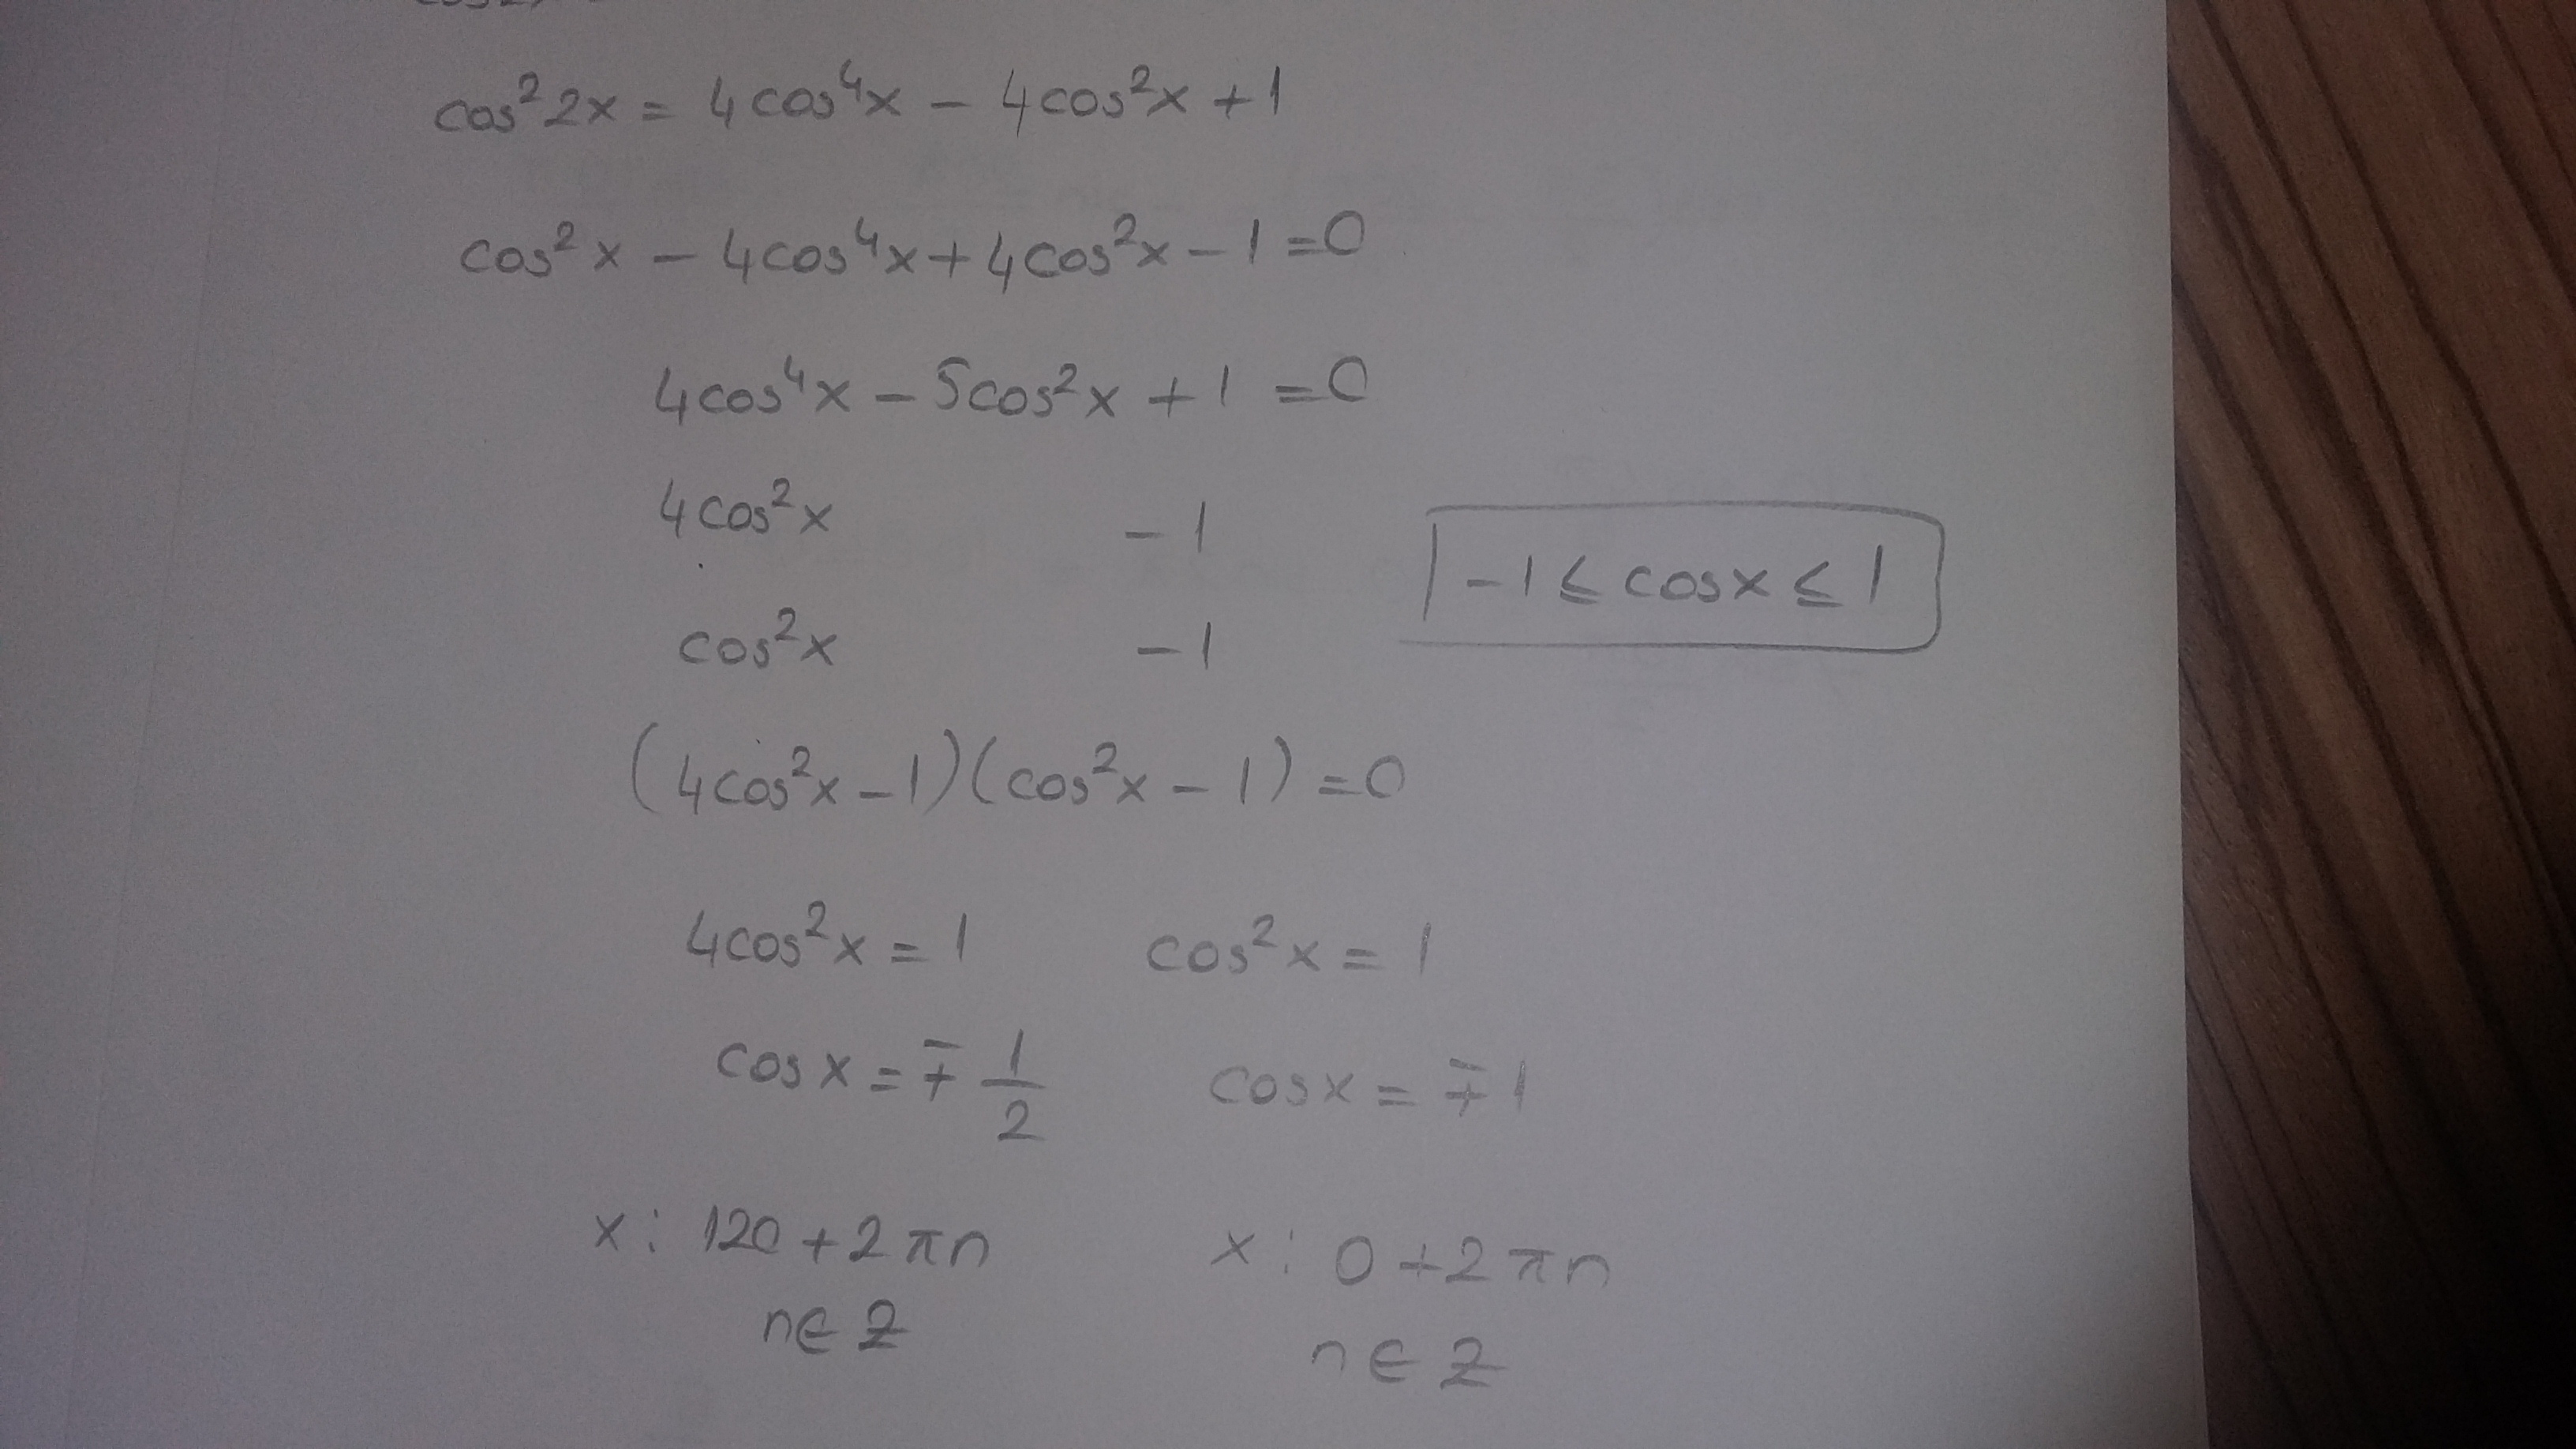 cos²2x = 4cos⁴x − 4cos²x + 1
cos²x − 4cos⁴x + 4cos²x − 1 = 0
4cos⁴x − 5cos²x + 1 = 0
4cos²x −1
−1 ≤ cosx ≤ 1
cos²x −1
(4cos²x − 1)(cos²x − 1) = 0
4cos²x = 1 cos²x = 1
cosx = ∓ 1/2 cosx = ∓1
x : 120 + 2πn x : 0 + 2πn
n∈Z n∈Z